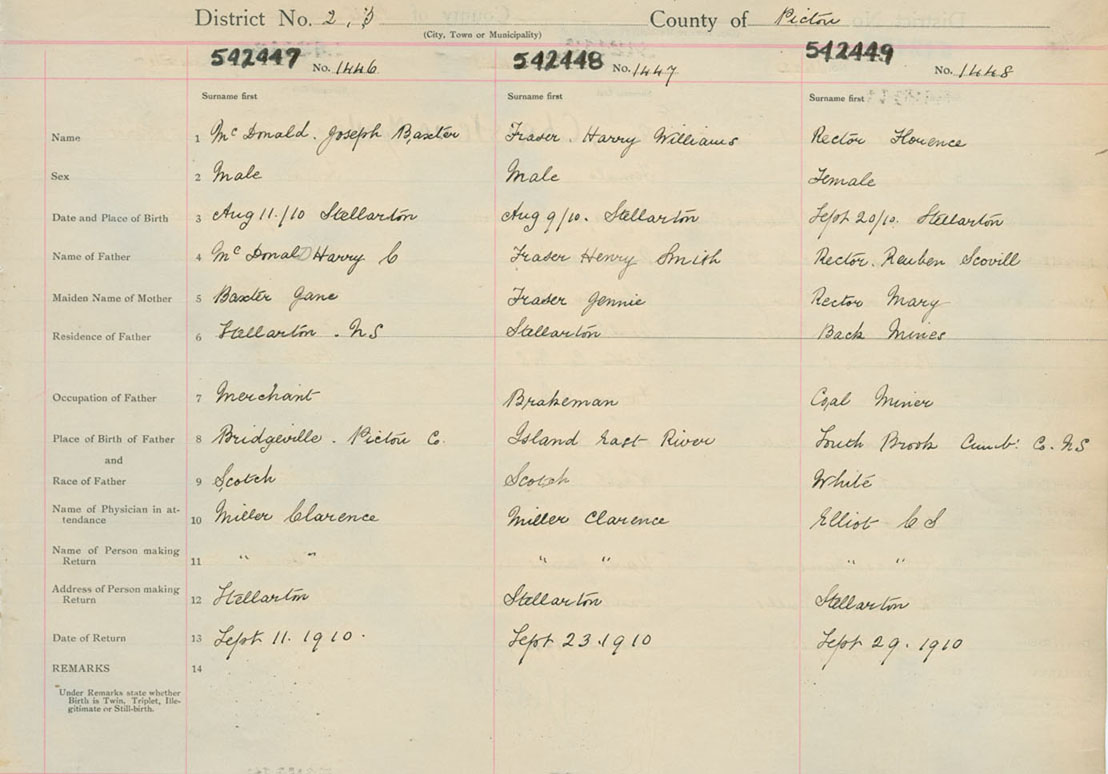 District No. 2, B County of Pictou
(City, Town or Municipality)
542447 No. 1446 542448 No. 1447 542449 No. 1448
Surname first Surname first Surname first
Name 1 Mc Donald. Joseph Baxter Fraser. Harry Williams Rector Florence
Sex 2 Male Male Female
Date and Place of Birth 3 Aug 11./10 Stellarton Aug 9/10. Stellarton Sept 20/10. Stellarton
Name of Father 4 Mc Donald Harry C Fraser Henry Smith Rector. Reuben Scovill
Maiden Name of Mother 5 Baxter Jane Fraser Jennie Rector Mary
Residence of Father 6 Stellarton. NS Stellarton Back Mines
Occupation of Father 7 Merchant Brakeman Coal Miner
Place of Birth of Father 8 Bridgeville. Pictou Co. Island East River South Brook Cumb: Co. NS
and
Race of Father 9 Scotch Scotch White
Name of Physician in at-
tendance 10 Miller Clarence Miller Clarence Elliot C S
Name of Person making
Return 11 " " " " " "
Address of Person making
Return 12 Stellarton Stellarton Stellarton
Date of Return 13 Sept 11. 1910. Sept 23. 1910 Sept 29. 1910
REMARKS 14
"Under Remarks state whether
Birth is Twin, Triplet, Ille-
gitimate or Still-birth.